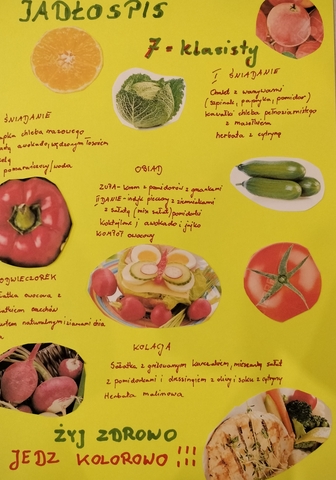 JADŁOSPIS
7-klasisty
I ŚNIADANIE
Omlet z warzywami
(szpinak, papryka, pomidor)
kawałki chleba pełnoziarnistego
z masełkiem
herbata z cytryną
ŚNIADANIE
chleba razowego
avokado, wędzonym łososiem
pomarańczowy/woda
OBIAD
ZUPA - krem z pomidorów z grzankami
II DANIE - indyk pieczony z ziemniakami
z sałatą (mix sałat) pomidorki
koktajlowe, avokado i jajko
KOMPOT owocowy
PODWIECZOREK
Sałatka owocowa z
dodatkiem orzechów
jogurtem naturalnym i ziarnami chia
KOLACJA
Sałatka z grillowanym kurczakiem, mieszanką sałat
z pomidorkami i dressingiem z oliwy i soku z cytryny
Herbata malinowa
ŻYJ ZDROWO
JEDZ KOLOROWO !!!